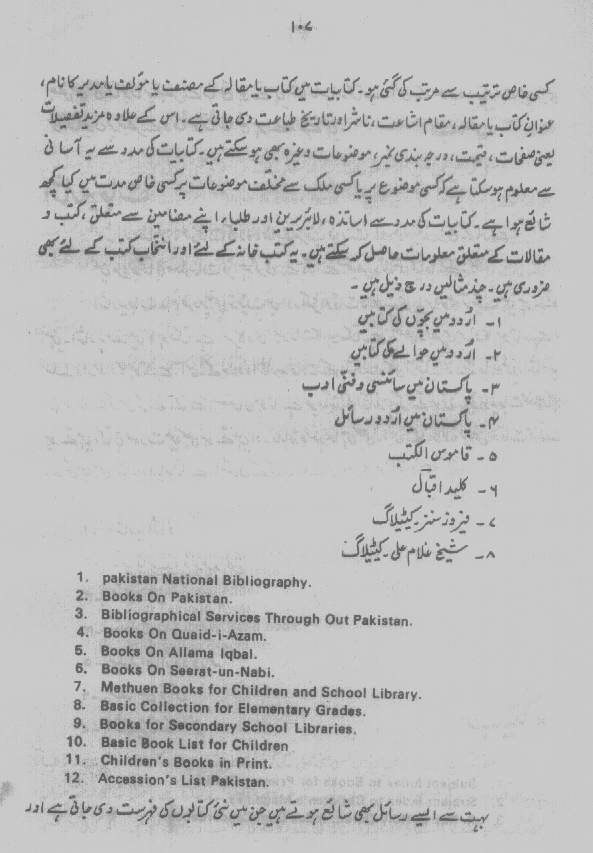 ۱۰۷
کسی خاص ترتیب سے مرتب کی گئی ہو۔ کتابیات میں کتاب یا مقالہ کے مصنف یا مؤلف یا مدیر کا نام،
عنوان کتاب یا مقالہ، مقام اشاعت، ناشر اور تاریخ طباعت دی جاتی ہے۔ اس کے علاوہ مزید تفصیلات
یعنی صفحات، قیمت، درجہ بندی نمبر، موضوعات وغیرہ بھی ہو سکتے ہیں۔ کتابیات کی مدد سے یہ آسانی
سے معلوم ہو سکتا ہے کہ کسی موضوع پر یا کسی ملک سے مختلف موضوعات پر کسی خاص مدت میں کیا کچھ
شائع ہوا ہے۔ کتابیات کی مدد سے اساتذہ، لائبریرین اور طلباء اپنے مضامین سے متعلق، کتب و
مقالات کے متعلق معلومات حاصل کر سکتے ہیں۔ یہ کتب خانہ کے لئے اور انتخاب کتب کے لئے بھی
ضروری ہیں۔ چند مثالیں درج ذیل ہیں۔
۱۔ اُردو میں بچّوں کی کتابیں
۲۔ اُردو میں حوالے کی کتابیں
۳۔ پاکستان میں سائنسی و فنّی ادب
۴۔ پاکستان میں اُردو رسائل
۵۔ قاموس الکتب
۶۔ کلید اقبال
۷۔ فیروز سنز۔ کیٹیلاگ
۸۔ شیخ غلام علی۔ کیٹیلاگ
1. pakistan National Bibliography.
2. Books On Pakistan.
3. Bibliographical Services Through Out Pakistan.
4. Books On Quaid-i-Azam.
5. Books On Allama Iqbal.
6. Books On Seerat-un-Nabi.
7. Methuen Books for Children and School Library.
8. Basic Collection for Elementary Grades.
9. Books for Secondary School Libraries.
10. Basic Book List for Children
11. Children's Books in Print.
12. Accession's List Pakistan.
بہت سے ایسے رسائل بھی شائع ہوتے ہیں جن میں نئی کتابوں کی فہرست دی جاتی ہے اور